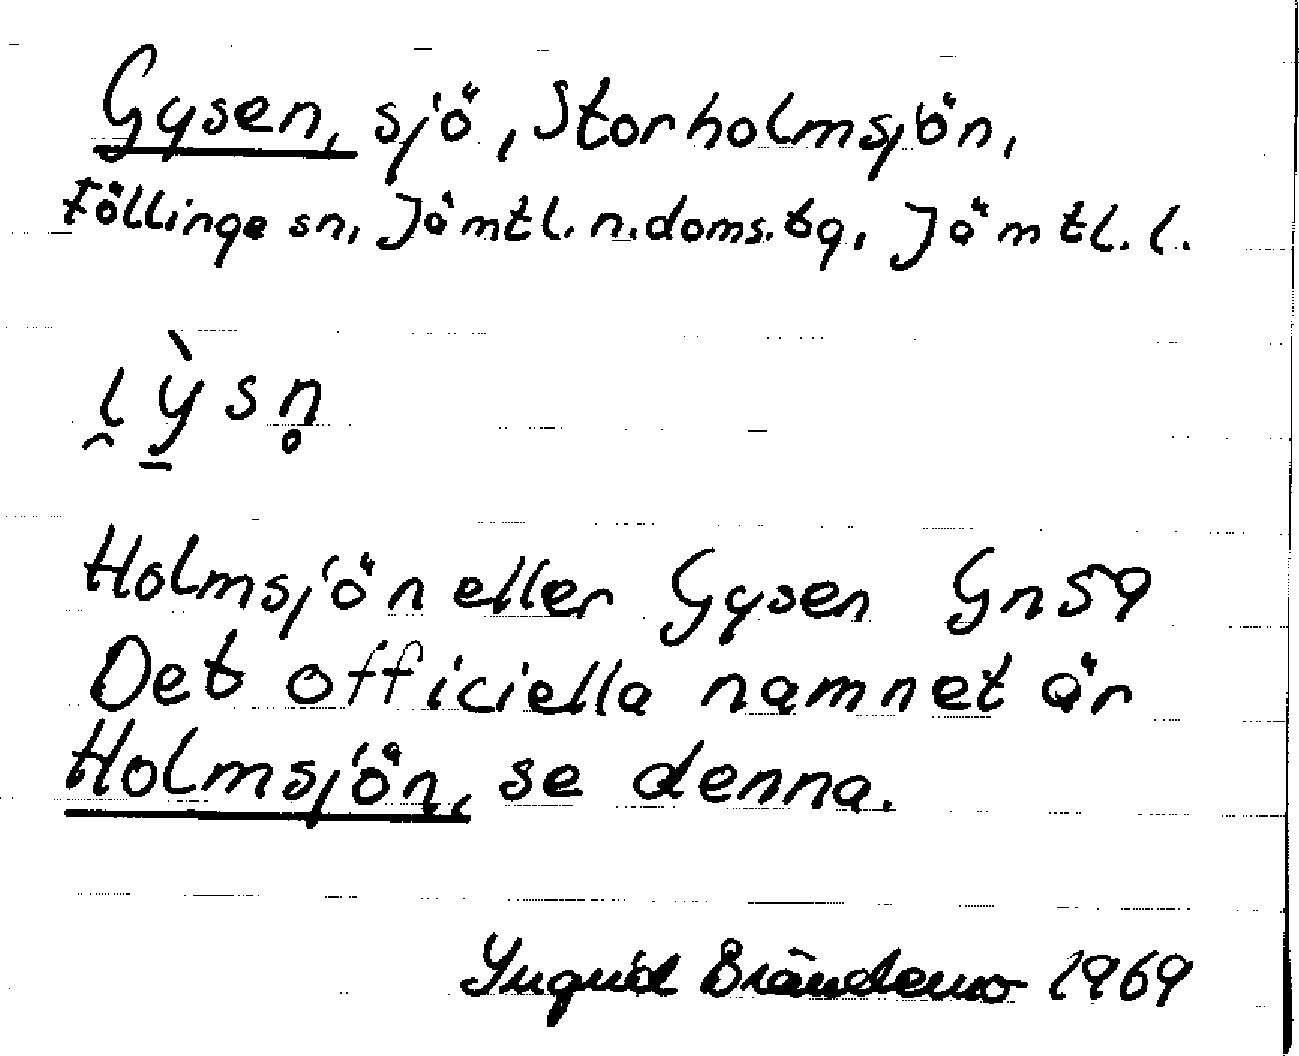 Gysen, sjö, Storholmsjön,
Föllinge sn, Jämtl. n. doms. tg, Jämtl. l.
i̯ ỳ̱ s n̥
Holmsjön eller Gysen Gn 59
Det officiella namnet är
Holmsjön, se denna.
Ingrid Brändemo 1969